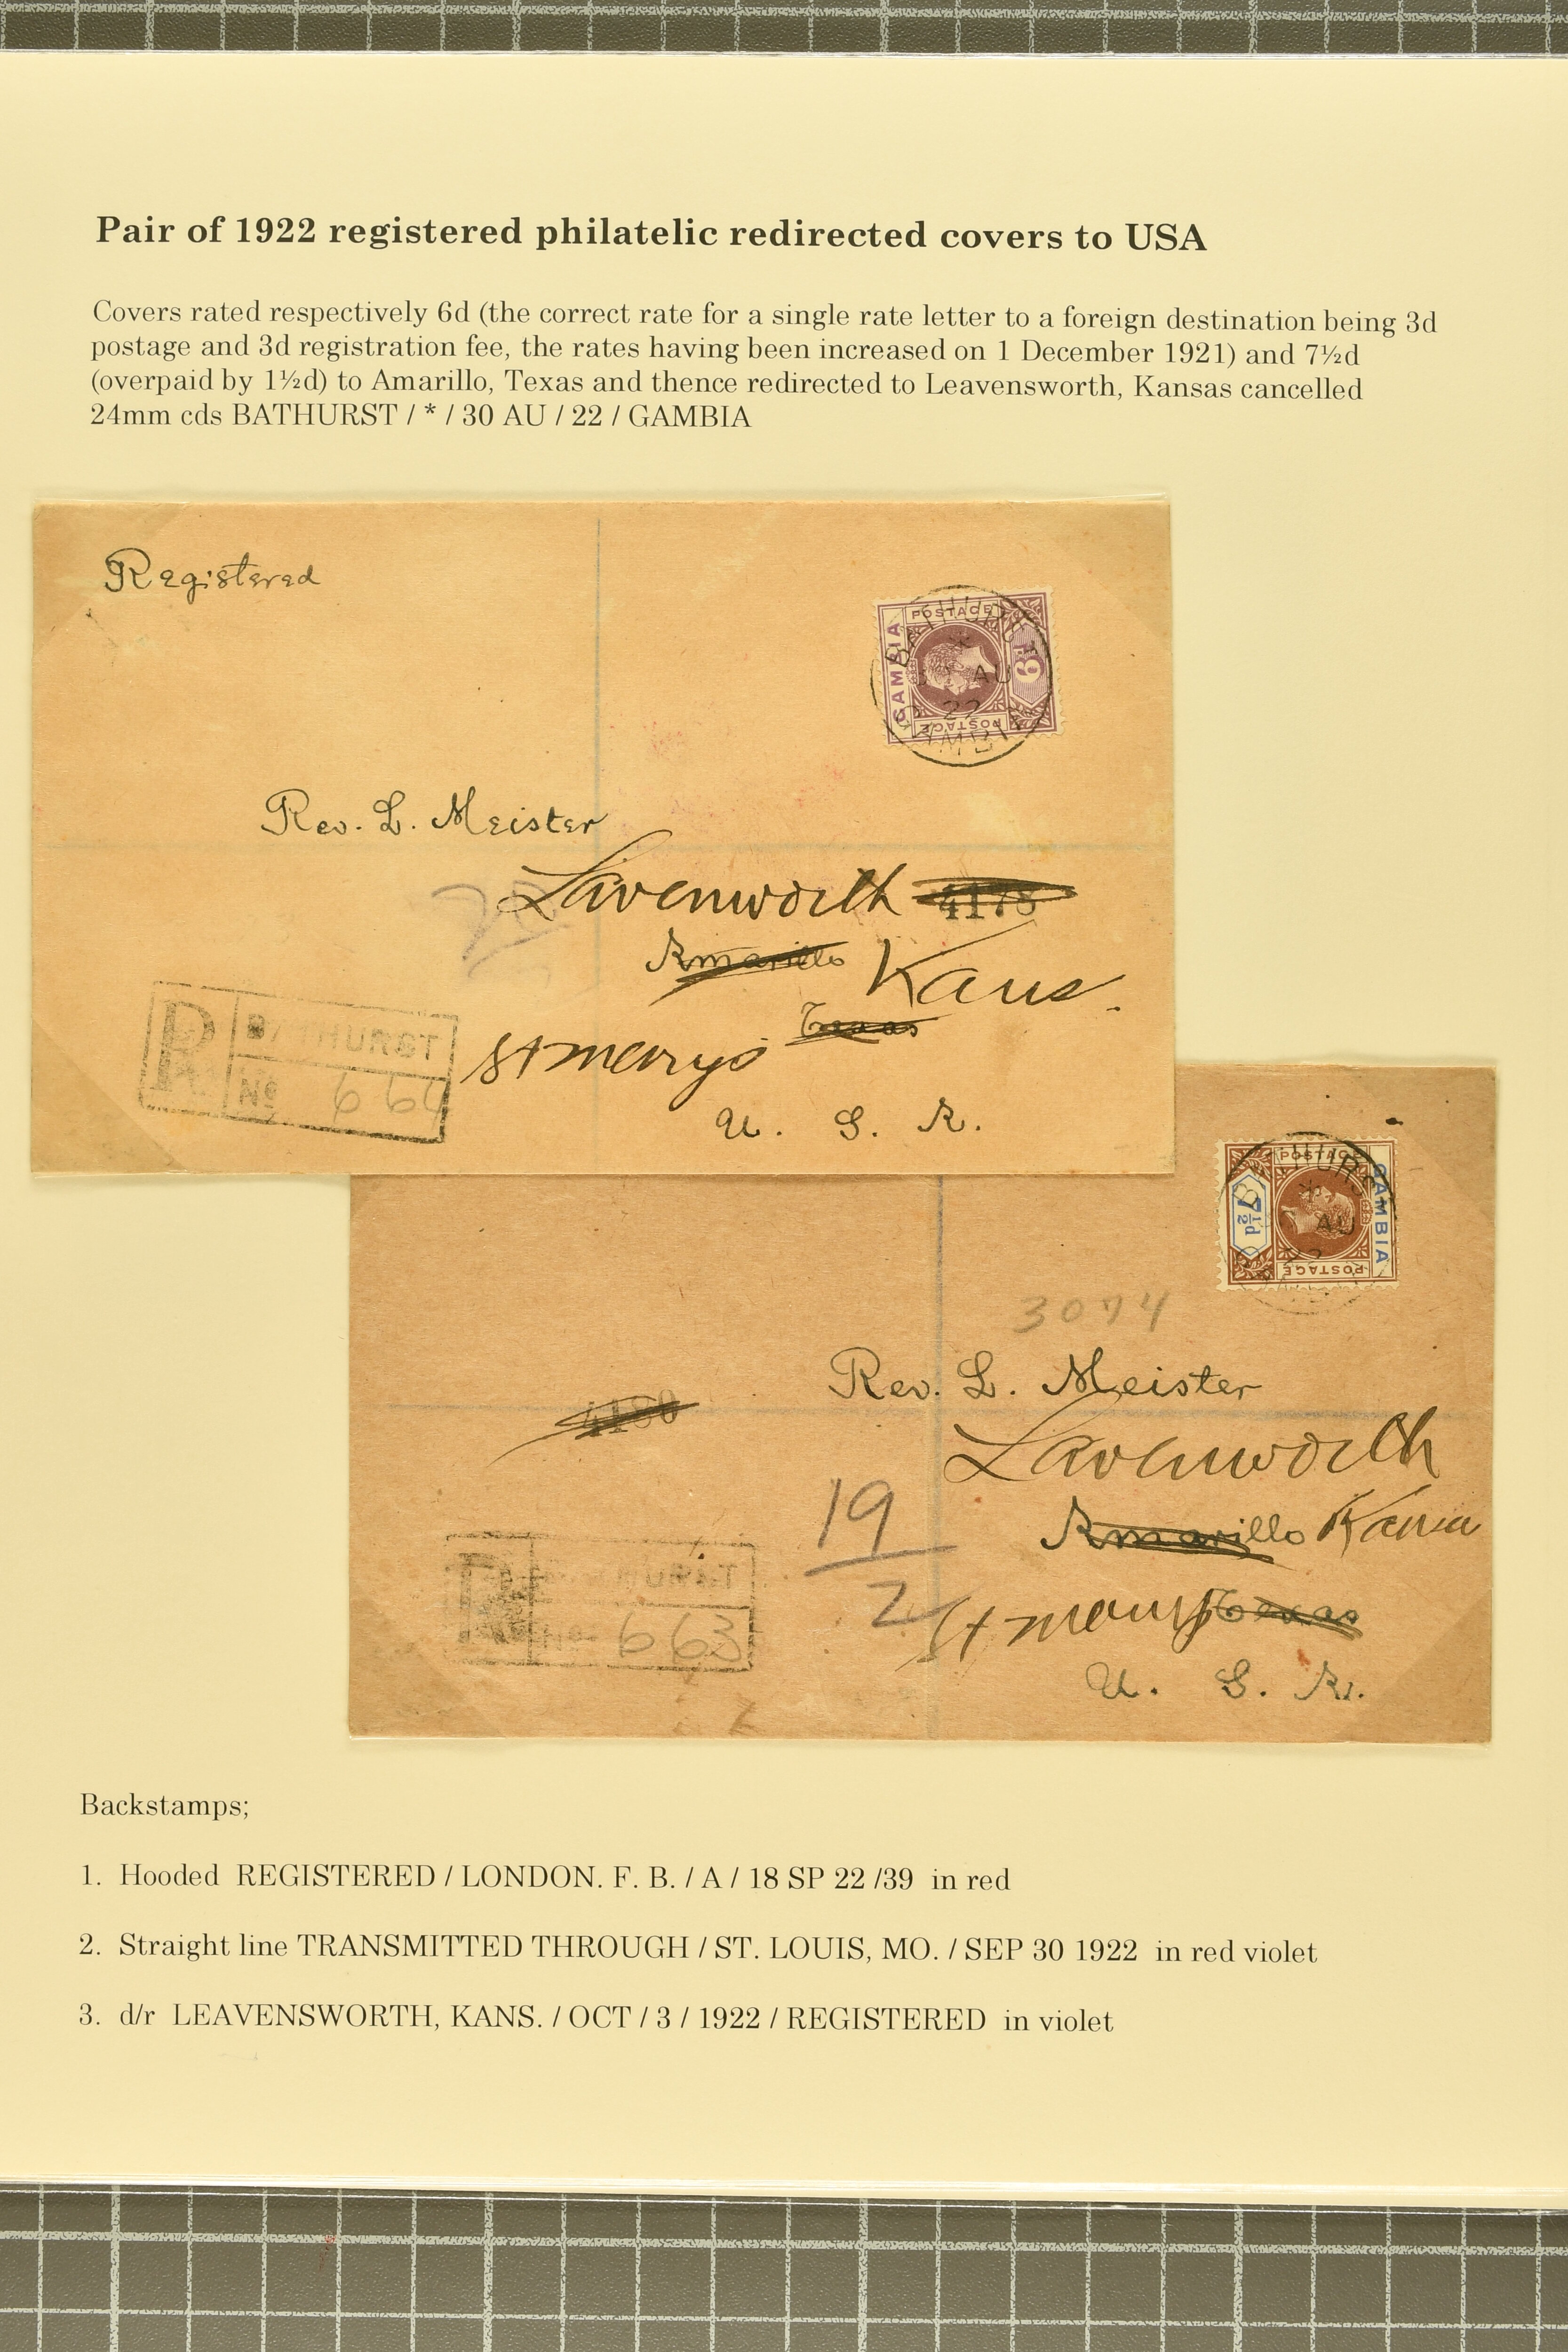 Pair of 1922 registered philatelic redirected covers to USA
Covers rated respectively 6d (the correct rate for a single rate letter to a foreign destination being 3d
postage and 3d registration fee, the rates having been increased on 1 December 1921) and 7½d
(overpaid by 1½d) to Amarillo, Texas and thence redirected to Leavensworth, Kansas cancelled
24mm cds BATHURST / * / 30 AU / 22 / GAMBIA
Registered
POSTAGE
GAMBIA
6d
POSTAGE
AU
22
Rev. L. Meister
Lavenworth 4178
Amarillo Kans.
Texas
St marys
U. S. A.
R BATHURST
No 664
POSTAGE
GAMBIA
7½d
POSTAGE
AU
22
3074
Rev. L. Meister
4180
Lavenworth
19
2
Amarillo
St marys Texas
U. S. A.
R
663
Backstamps;
1. Hooded REGISTERED / LONDON. F. B. / A / 18 SP 22 /39 in red
2. Straight line TRANSMITTED THROUGH / ST. LOUIS, MO. / SEP 30 1922 in red violet
3. d/r LEAVENSWORTH, KANS. / OCT / 3 / 1922 / REGISTERED in violet